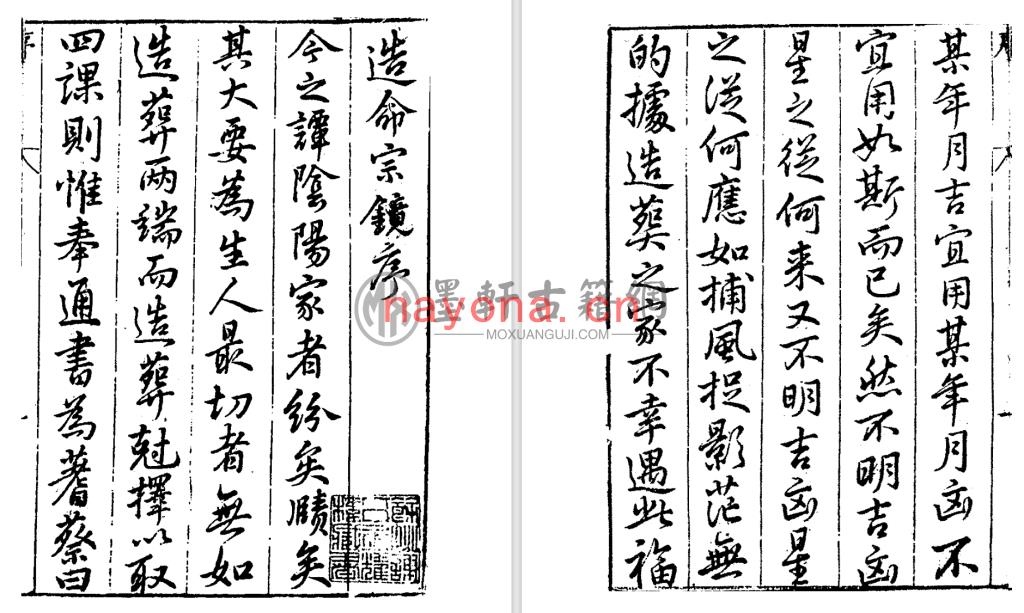 造命宗鏡序
今之譚陰陽家者紛矣賾矣
其大要為生人最切者無如
造葬两端而造葬尅擇以取
四課則惟奉通書為蓍蔡曰
某年月吉宜用某年月凶不
宜用如斯而已矣然不明吉凶
星之從何来又不明吉凶星
之從何應如捕風捉影茫無
的據造葬之家不幸遇此福
墨軒古籍網
MOXUANGUJI.COM
nayona.cn